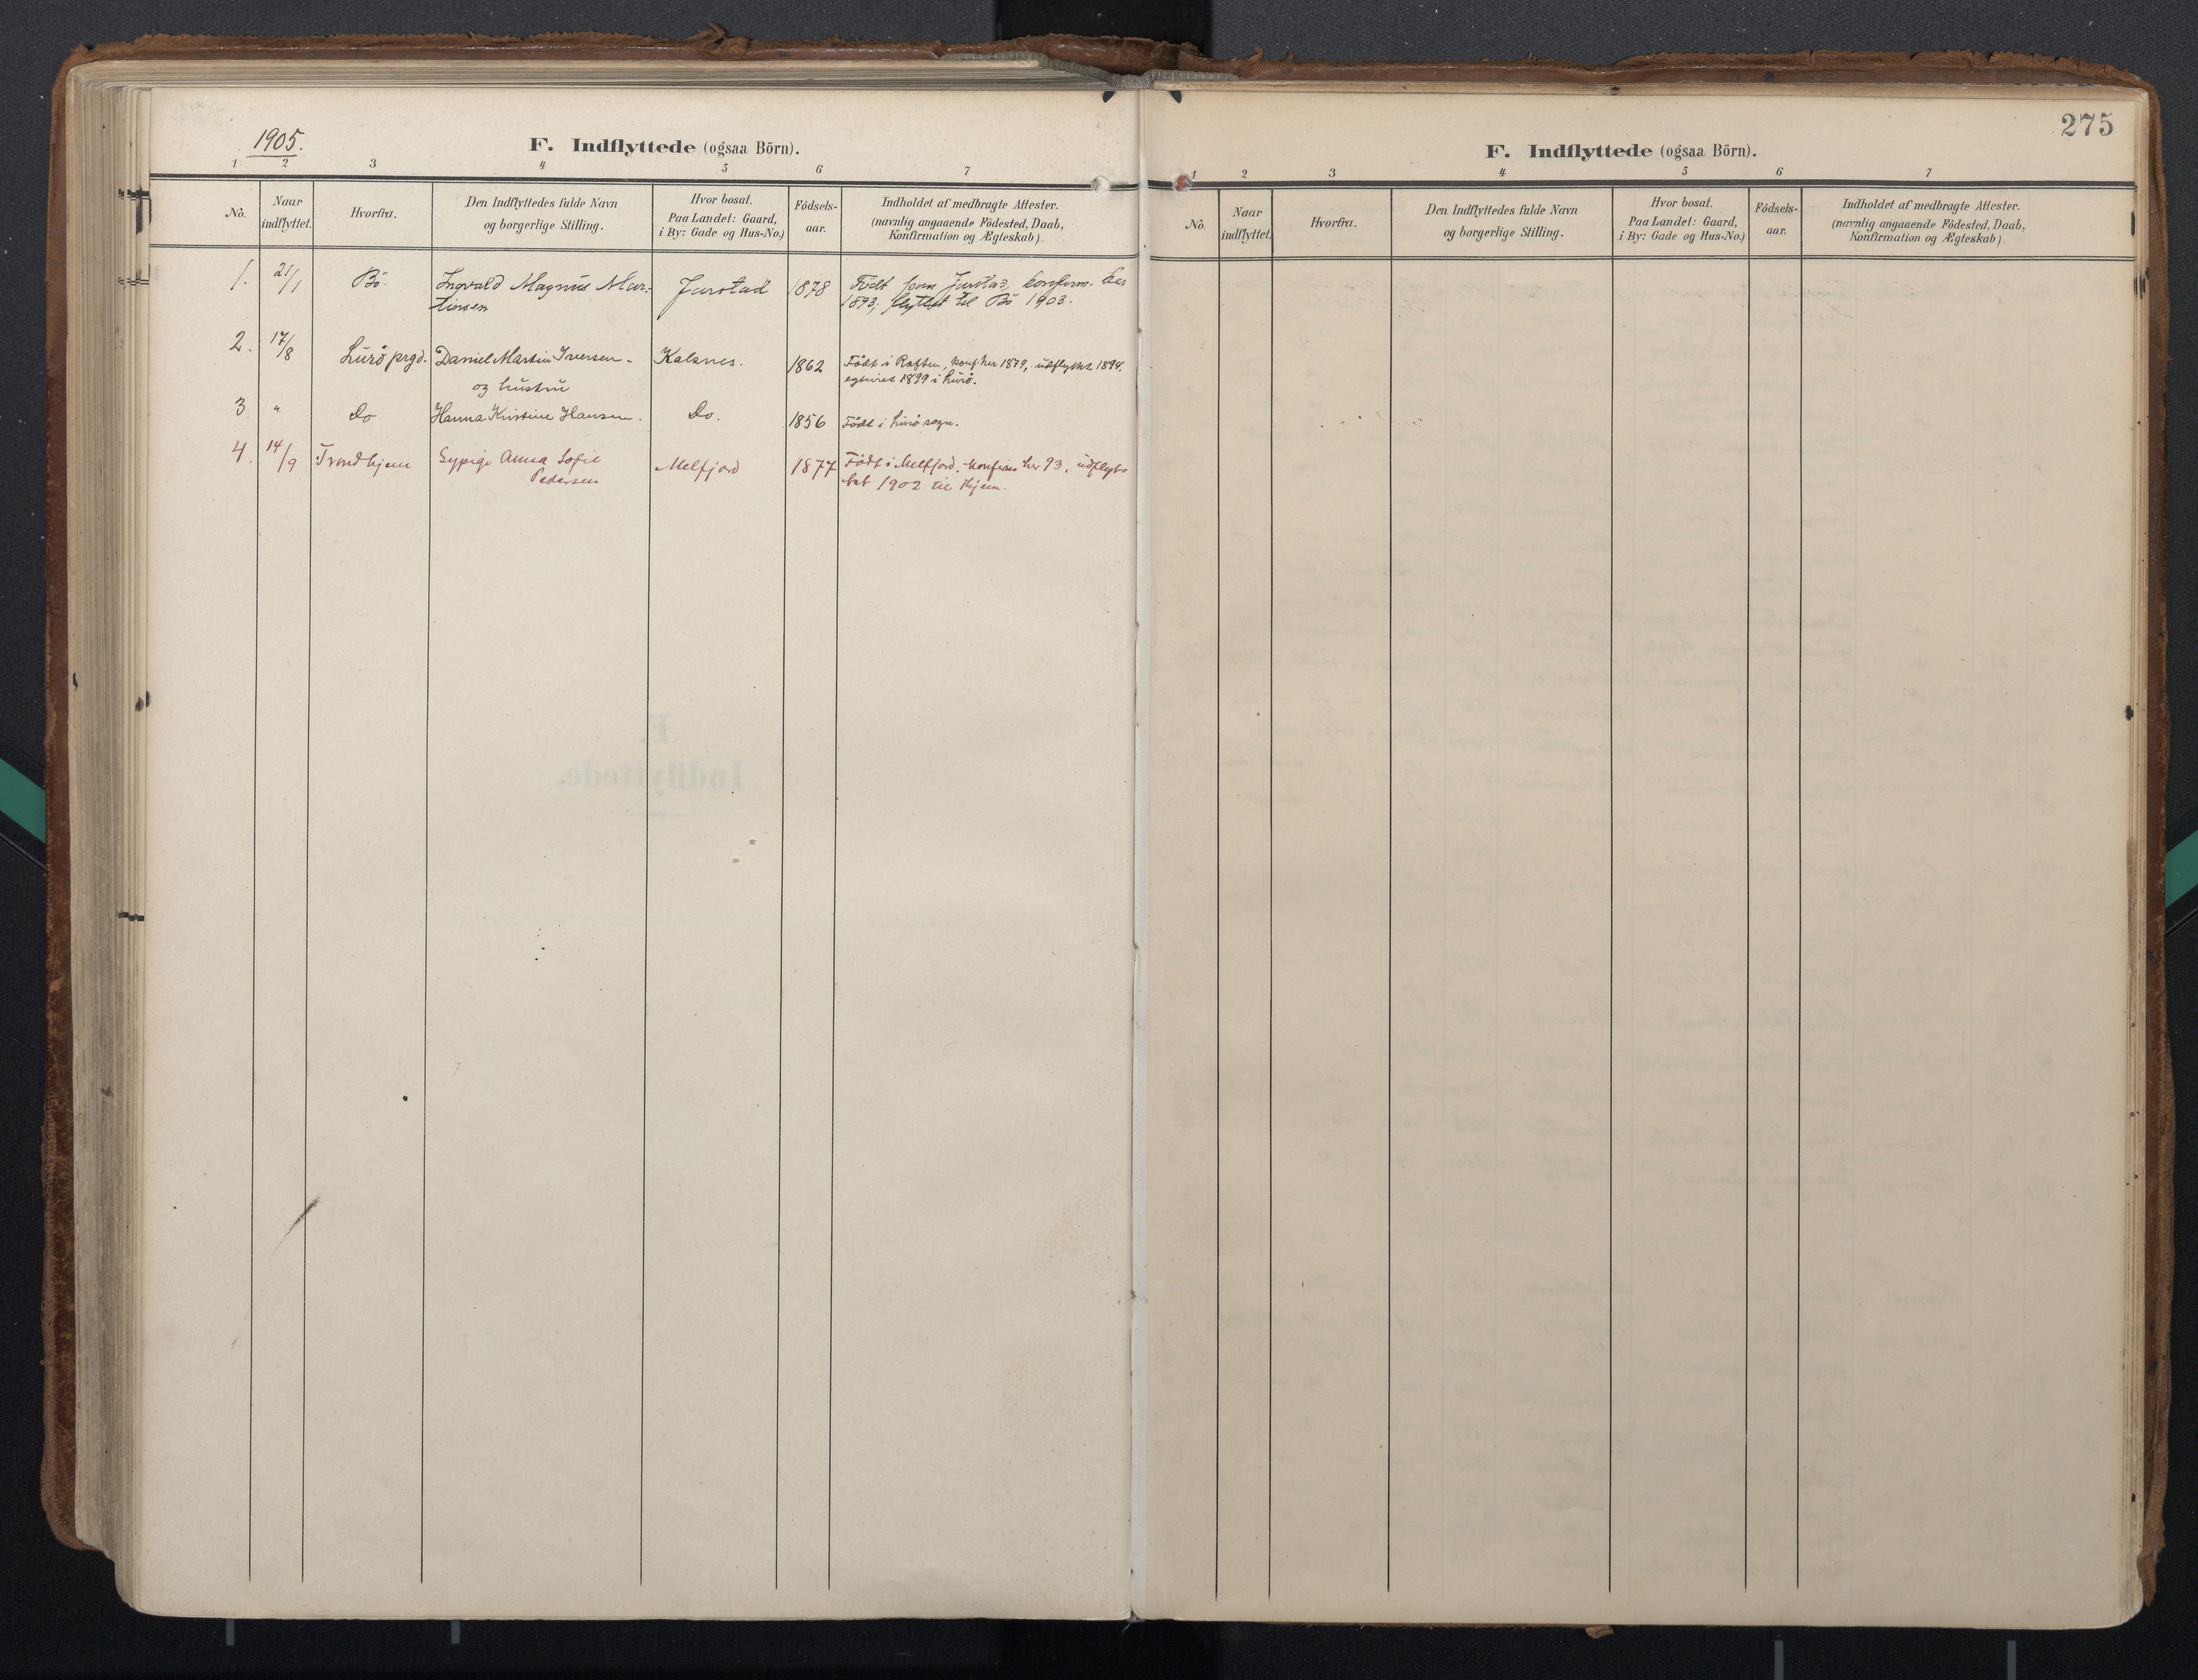 1905.
F. Indflyttede (ogsaa Börn).
1 2 3 4 5 6 7
No. Naar indflyttet. Hvorfra. Den Indflyttedes fulde Navn og borgerlige Stilling. Hvor bosat. Paa Landet: Gaard, i By: Gade og Hus-No.) Födsels-aar. Indholdet af medbragte Attester. (navnlig angaaende Födested, Daab, Konfirmation og Ægteskab).
1. 21/1 Bö. Ingvald Magnus Mar- Jarstad 1878 Födt paa Jarstad, konfirm. her
tinsen 1893; flyttet til Bö 1903.
2. 17/8 Lurö prgd. Daniel Martin Iversen - Kalsnes. 1862 Födt i Raften, konf. her 1879, udflyttet 1894.
og hustru egteviet 1899 i Lurö.
3 " Do Hanna Kristine Hansen. Do. 1856 Födt i Lurö sogn.
4. 14/9 Trondhjem Sypige Anna Sofie Melfjord 1877 Födt i Melfjord. konfirm her 93, udflyt-
Pedersen tet 1902 til Thjem.
275
F. Indflyttede (ogsaa Börn).
1 2 3 4 5 6 7
No. Naar indflyttet. Hvorfra. Den Indflyttedes fulde Navn og borgerlige Stilling. Hvor bosat. Paa Landet: Gaard, i By: Gade og Hus-No.) Födsels-aar. Indholdet af medbragte Attester. (navnlig angaaende Födested, Daab, Konfirmation og Ægteskab).